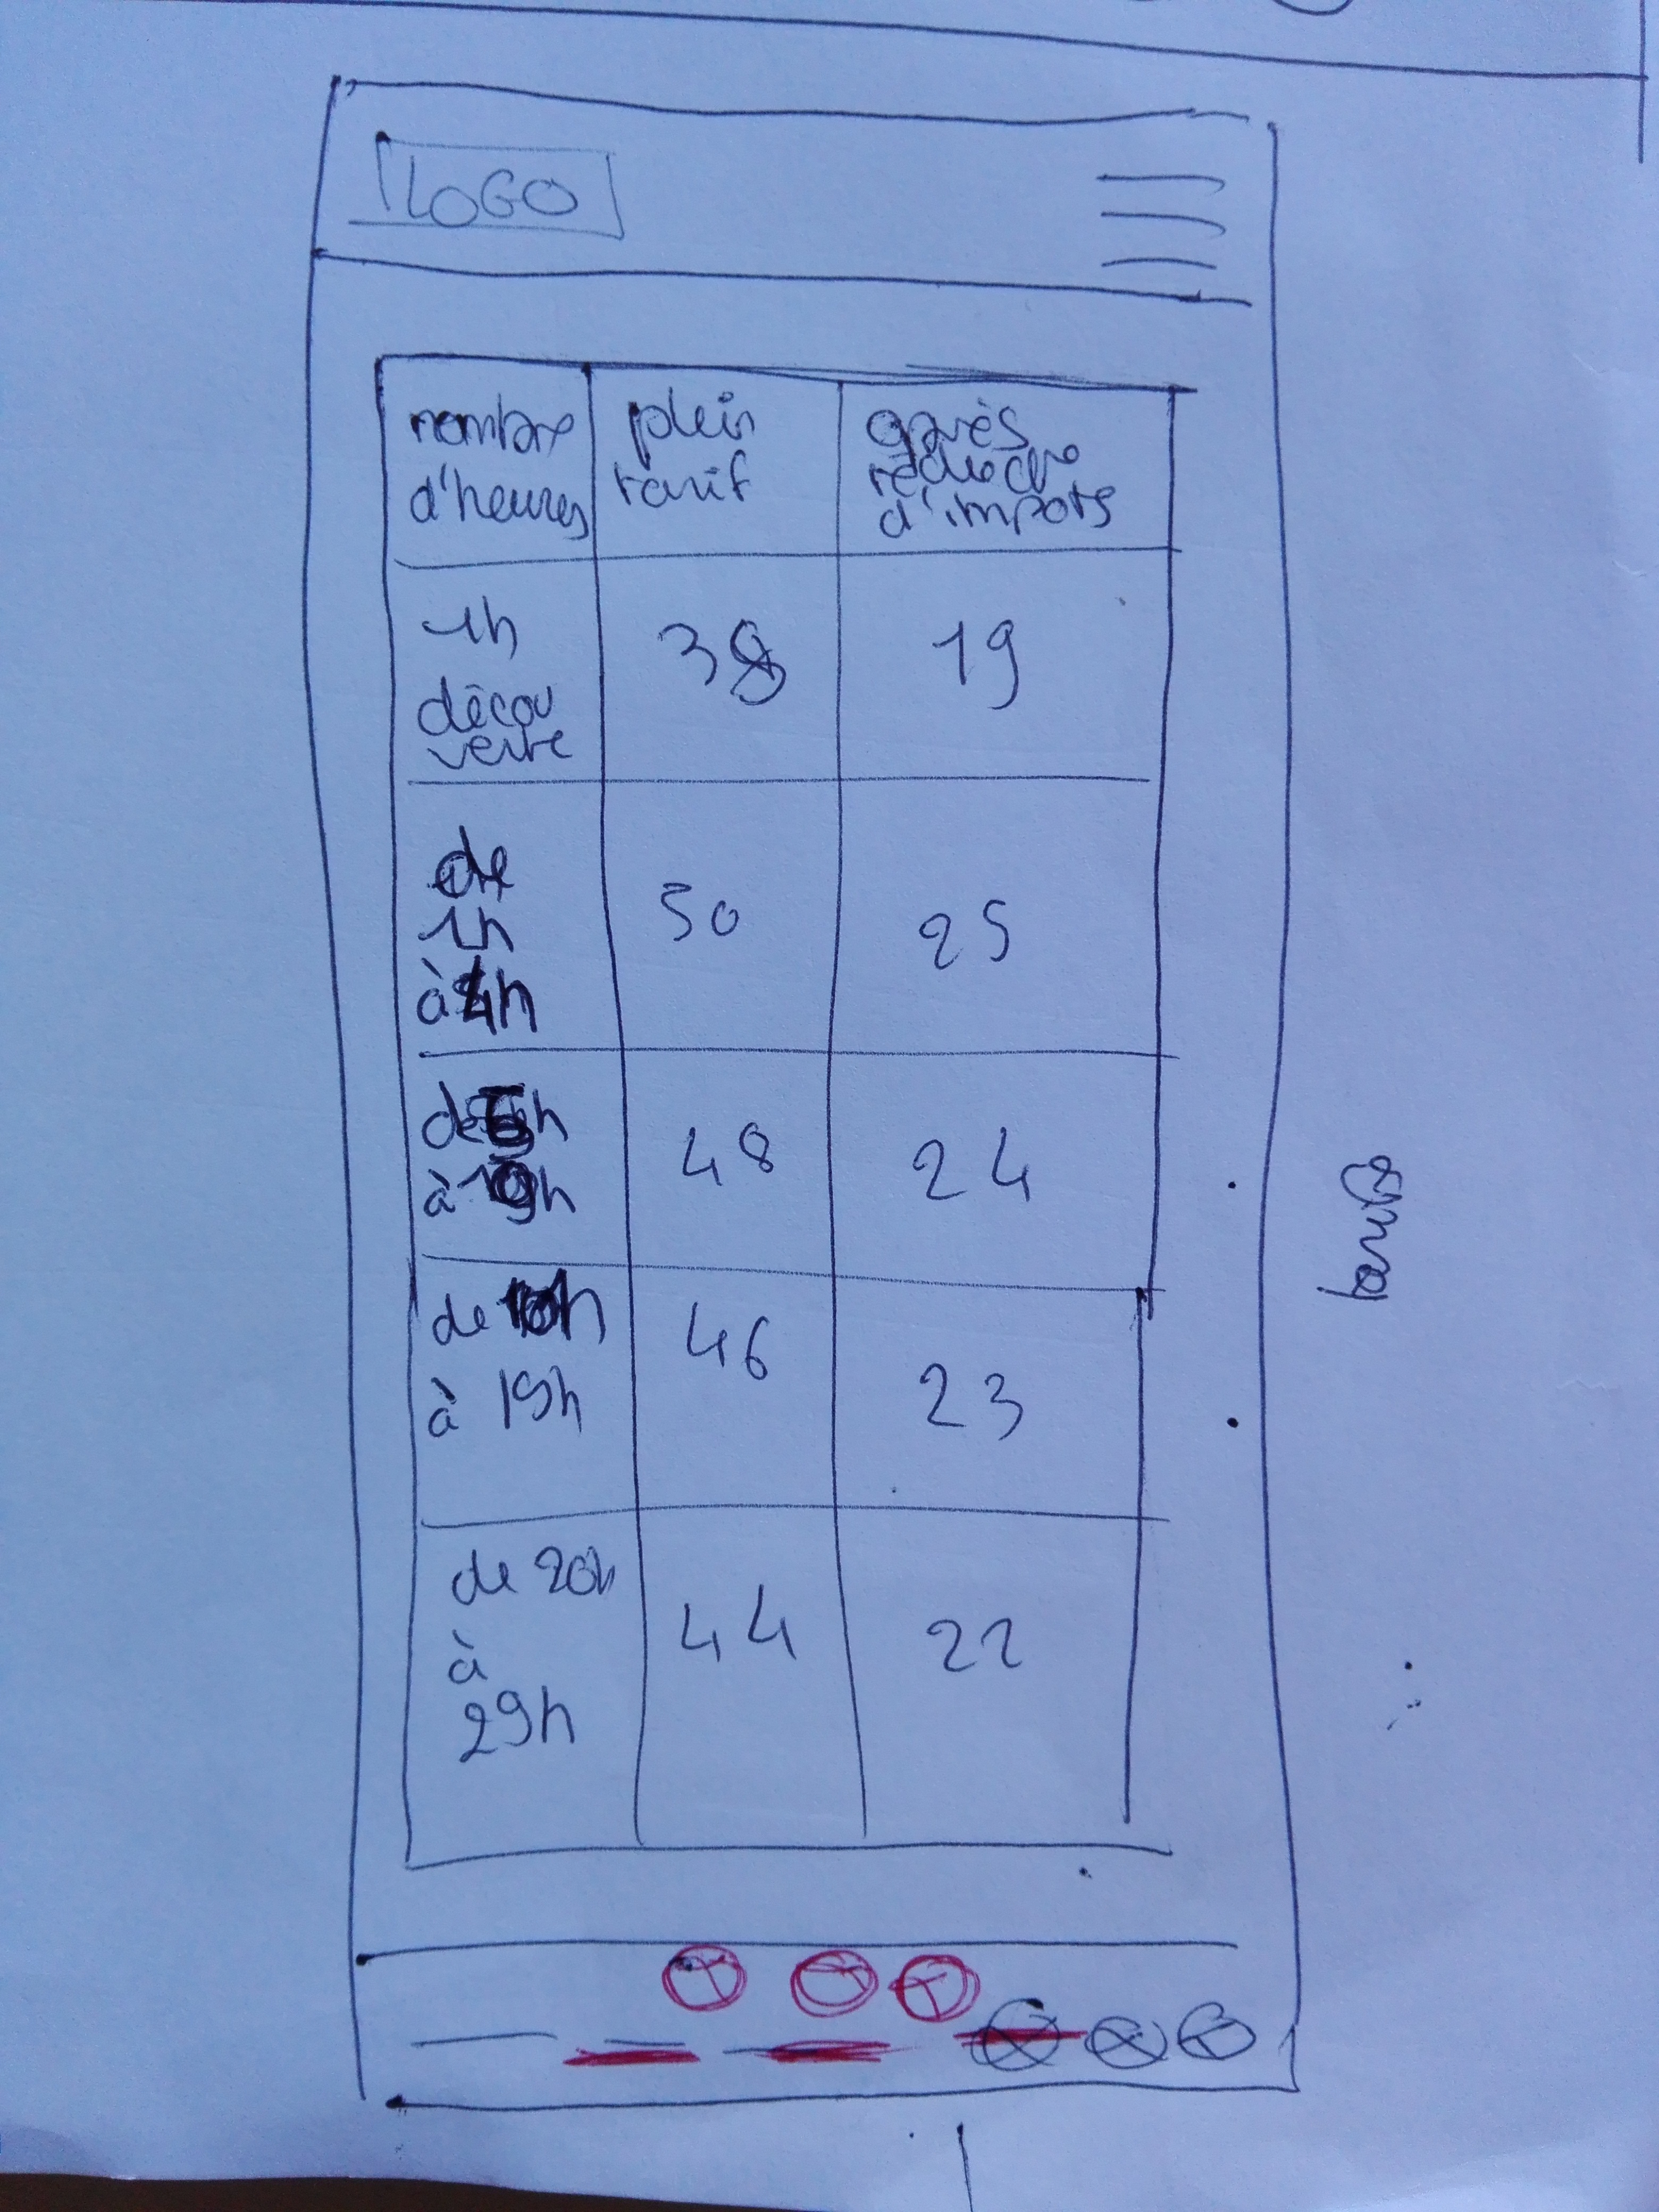 LOGO
nombre
d'heures
plein
tarif
après
d'impots
1h
décou
verte
38
19
de
1h
à 4h
50
25
de 5h
à 9h
48
24
de 10h
à 19h
46
23
de 20h
à
29h
44
22
tarifs